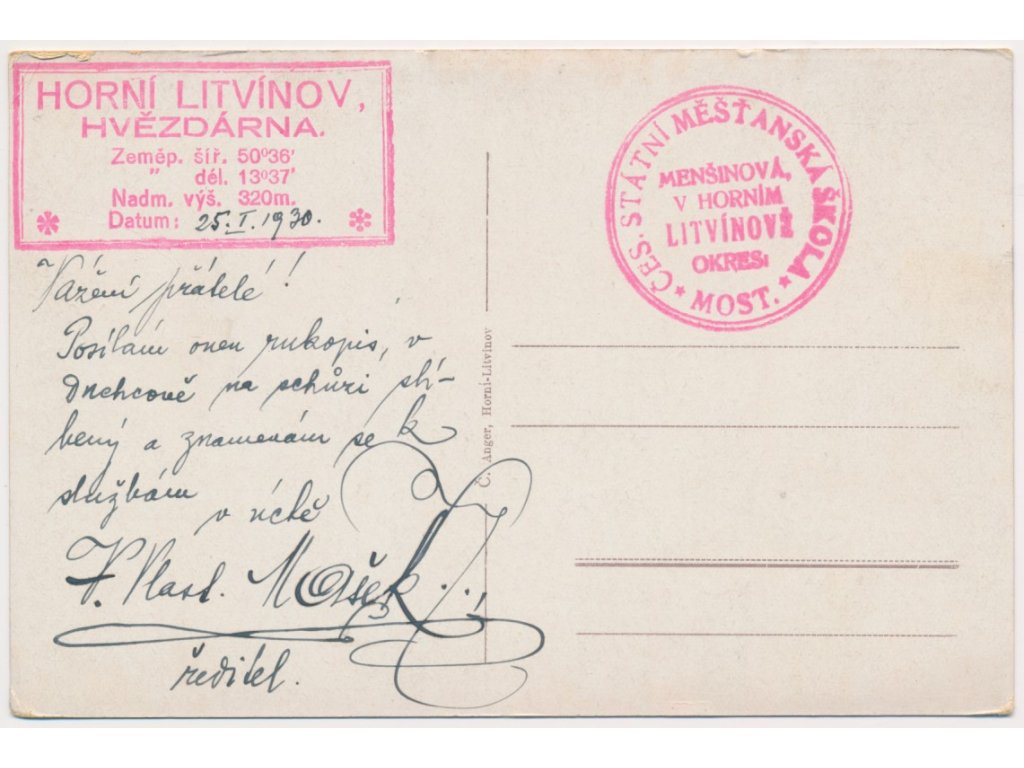 HORNÍ LITVÍNOV,
HVĚZDÁRNA.
Zeměp. šíř. 50°36'
" dél. 13°37'
Nadm. výš. 320m.
Datum: 25.I.1930.
ČES. STÁTNÍ MĚŠŤANSKÁ ŠKOLA
MENŠINOVÁ,
V HORNÍM
LITVÍNOVĚ
OKRES:
MOST.
Vážení přátelé!
Posílám onen rukopis, v
Duchcově na schůzi slí-
bený a znamenám se k
službám
v úctě
V. Vlast. Mašek
ředitel.
Č. Anger, Horní-Litvínov